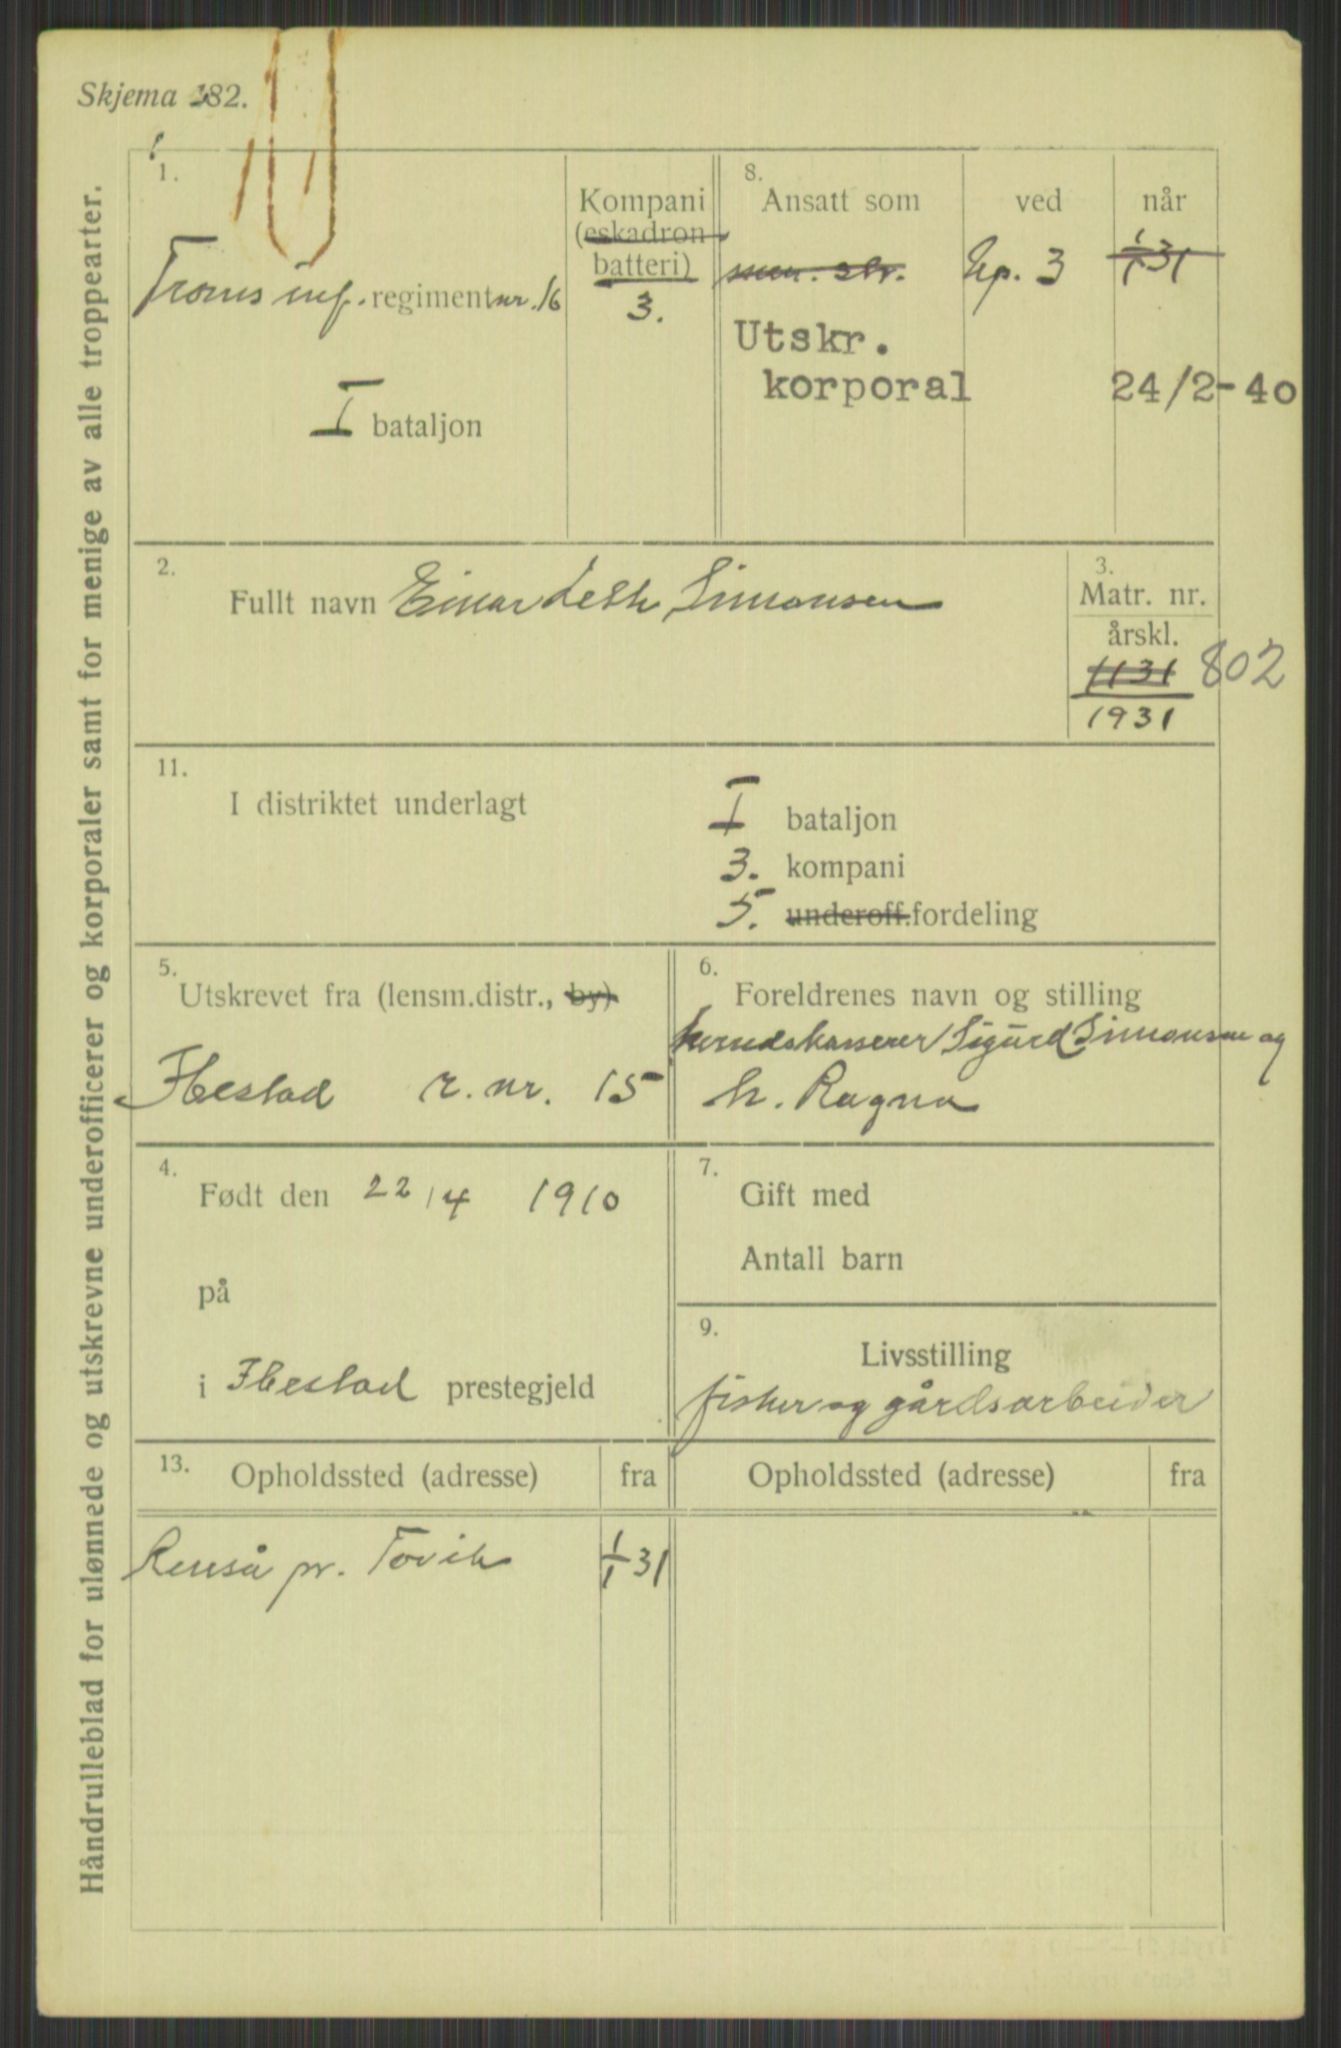 Skjema 182.
Håndrulleblad for ulønnede og utskrevne underofficerer og korporaler samt for menige av alle troppearter.
1.
Troms inf. regiment nr. 16
I bataljon
Kompani
(eskadron
batteri)
3.
8.
Ansatt som ved når
Kp. 3 1/1 31
Utskr.
korporal 24/2-40
2.
Fullt navn Einar Leth Simonsen
3.
Matr. nr.
årskl.
1131 802
1931
11.
I distriktet underlagt
I bataljon
3. kompani
5. underoff.fordeling
5.
Utskrevet fra (lensm.distr., by)
Ibestad r. nr. 15
6.
Foreldrenes navn og stilling
herredskasserer Sigurd Simonsen og
h. Ragna
4.
Født den 22/4 1910
på
i Ibestad prestegjeld
7.
Gift med
Antall barn
9.
Livsstilling
fisker og gårdsarbeider
13.
Opholdssted (adresse) fra Opholdssted (adresse) fra
Renså pr. Tovik 1/1 31